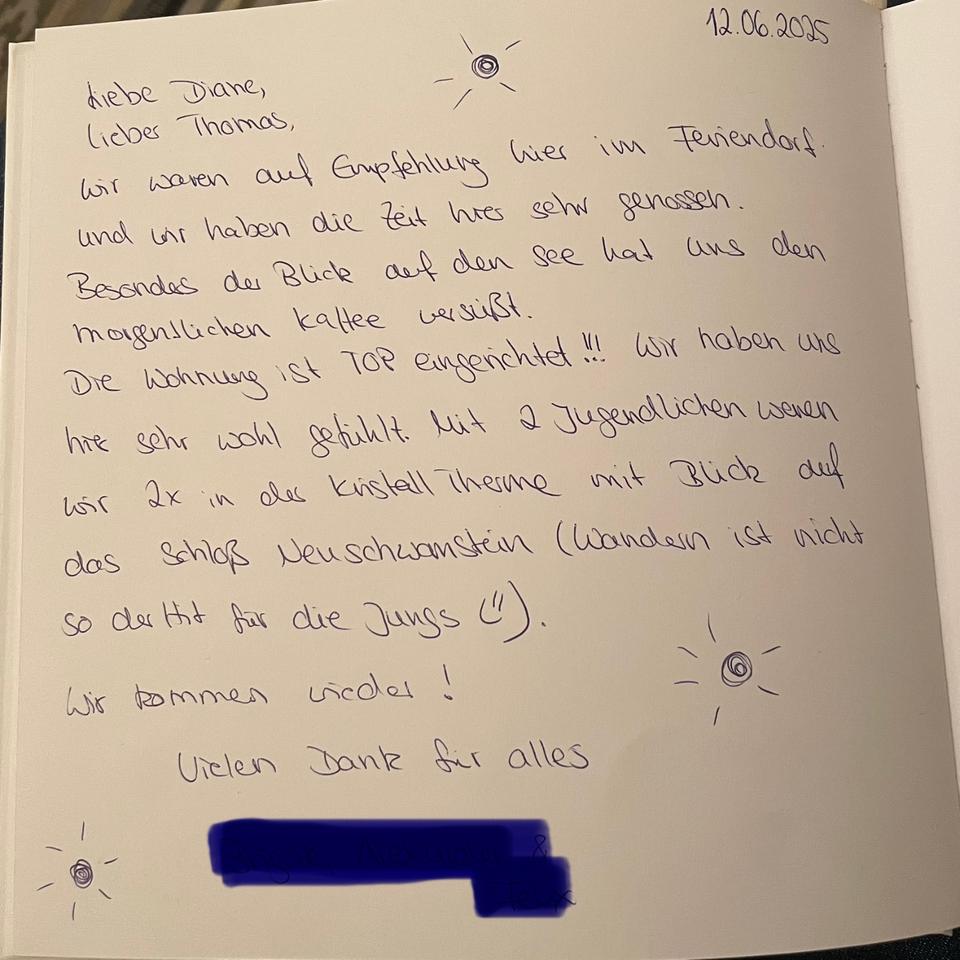 12.06.2025
Liebe Diane,
lieber Thomas,
wir waren auf Empfehlung hier im Feriendorf.
und wir haben die Zeit hier sehr genossen.
Besonders der Blick auf den See hat uns den
morgendlichen Kaffee versüßt.
Die Wohnung ist TOP eingerichtet!!! Wir haben uns
hier sehr wohl gefühlt. Mit 2 Jugendlichen waren
wir 2x in der Kristall Therme mit Blick auf
das Schloß Neuschwanstein (Wandern ist nicht
so der Hit für die Jungs ).
Wir kommen wieder!
Vielen Dank für alles
&